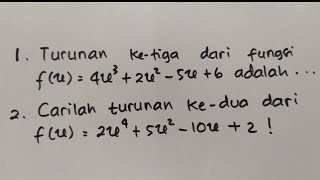 1. Turunan ke-tiga dari fungsi
f(x) = 4x³ + 2x² - 5x + 6 adalah ...
2. Carilah turunan ke-dua dari
f(x) = 2x⁴ + 5x² - 10x + 2 !